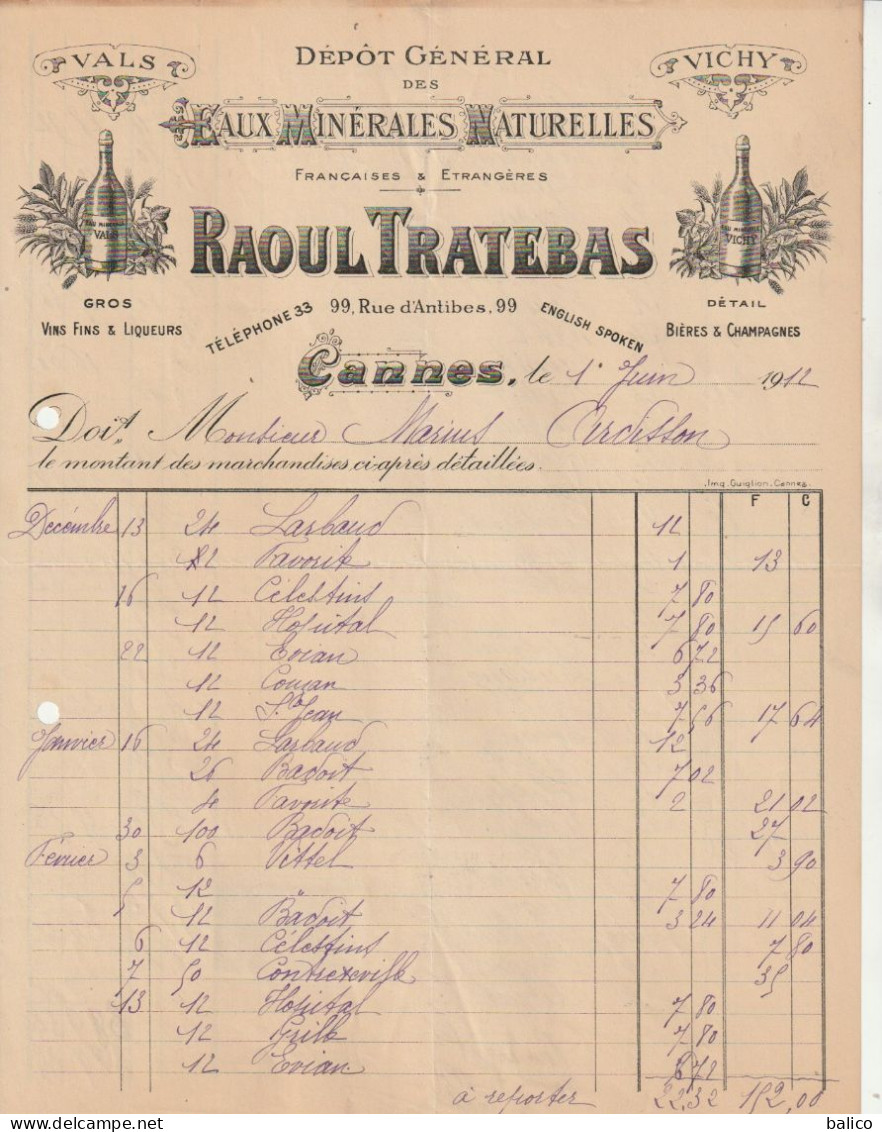 VALS
DÉPÔT GÉNÉRAL
VICHY
DES
EAUX MINÉRALES NATURELLES
FRANÇAISES & ETRANGÈRES
EAU MINÉRALE VALS
EAU MINÉRALE VICHY
RAOUL TRATEBAS
GROS
VINS FINS & LIQUEURS
TÉLÉPHONE 33
99, Rue d'Antibes, 99
ENGLISH SPOKEN
DÉTAIL
BIÈRES & CHAMPAGNES
Cannes, le 1° Juin 1912
Doit, Monsieur Marius
le montant des marchandises, ci-après détaillées.
Imp. Guiglion. Cannes.
F C
Décembre 13 24 Larbaud 12
Favorite 1 13
16 12 Célestins 7 80
12 Hopital 7 80 15 60
22 12 Evian 6 72
12 Couzan 3 36
12 St Jean 7 56 17 64
Janvier 16 24 Larbaud 12
26 Badoit 7 02
4 Favorite 2 21 02
30 100 Badoit 27
Février 3 6 Vittel 3 90
5 12 " 7 80
12 Badoit 3 24 11 04
6 12 Célestins 7 80
7 50 Contrexeville 35
13 12 Hopital 7 80
12 Grille 7 80
12 Evian 6 72
à reporter 22,32 152,00
balico